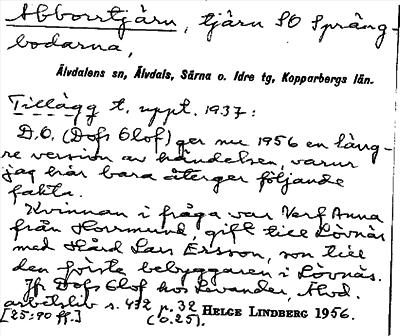 Abborrtjärn, tjärn SO Spräng-
bodarna,
Älvdalens sn, Älvdals, Särna o. Idre tg, Kopparbergs län.
Tillägg t. uppt. 1937:
D.O. (Dofs Olof) ger nu 1956 en läng-
re version av händelsen, varur
jag här bara återger följande
fakta.
Kvinnan i fråga var Verf Anna
från Horrmund, gift till Lövnäs
med Hård Lars Ersson, son till
den förste bebyggaren i Lövnäs.
Jfr Dofs Olof hos Levander, Älvd.
arbetsliv s. 432 r. 32
[25:90 ff.] (O.25).
HELGE LINDBERG 1956.